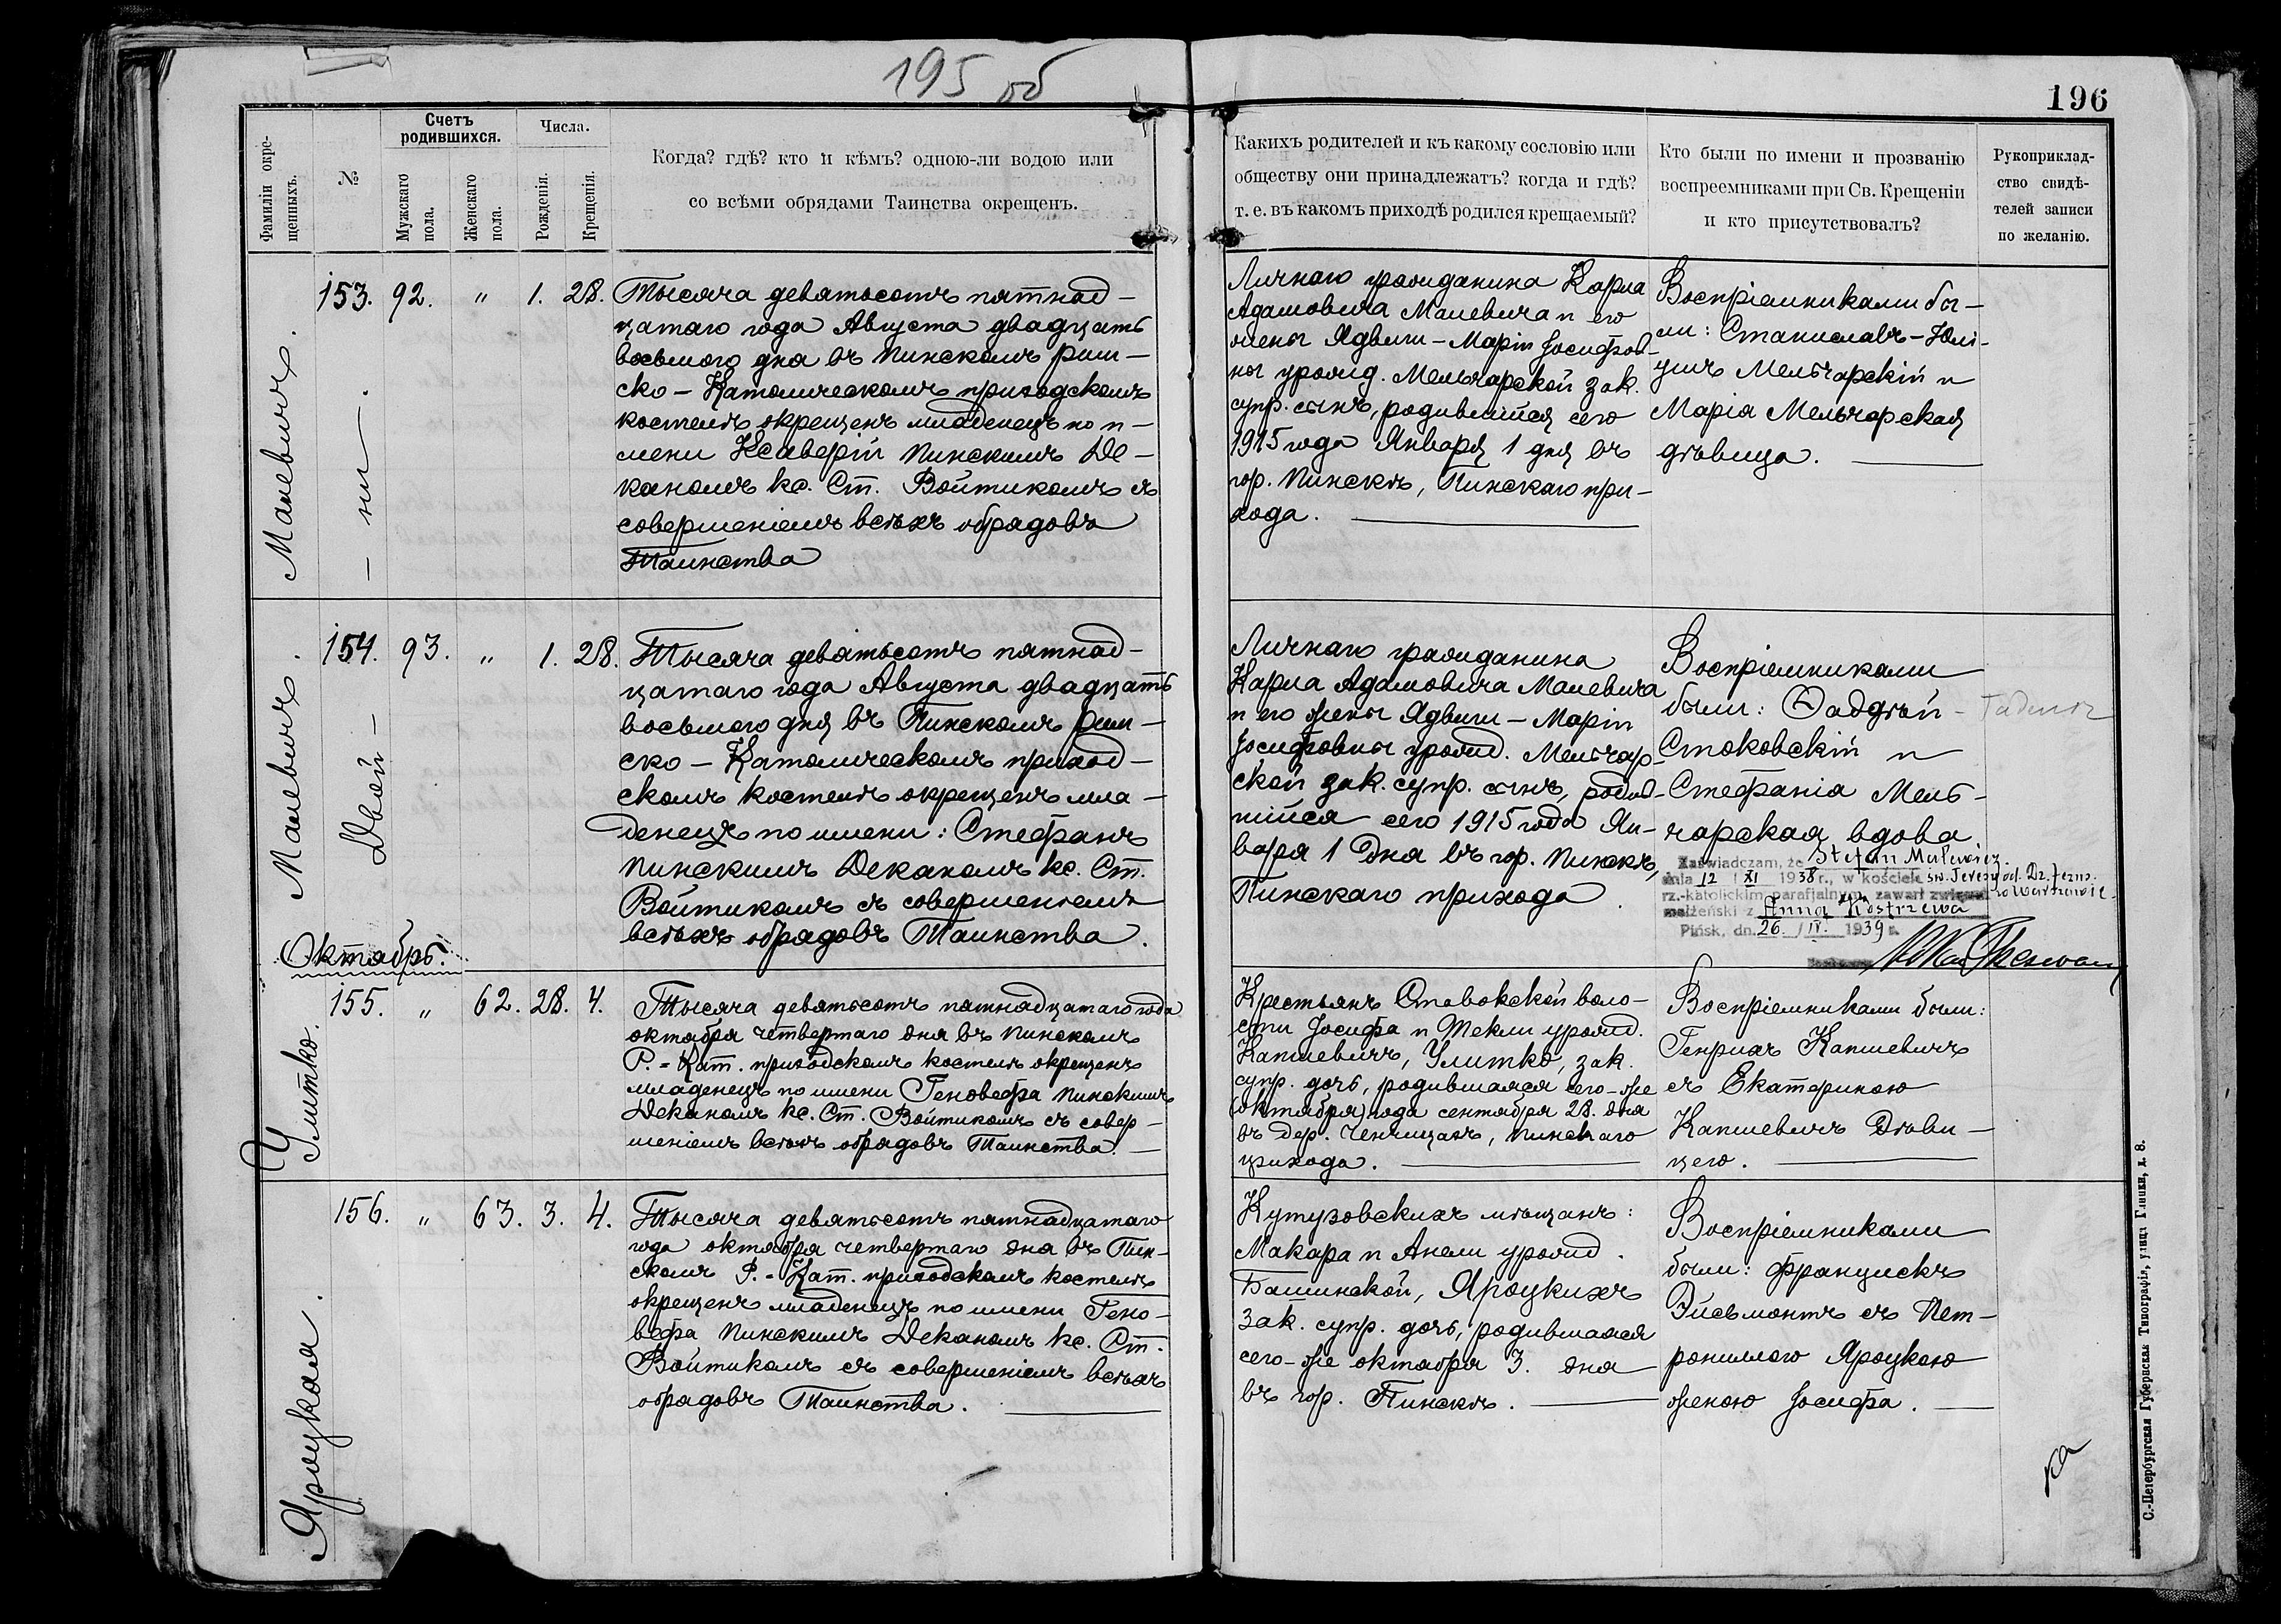 195 об
196
Фамиліи окре-
щенныхъ.
№
Счетъ
родившихся.
Мужскаго
пола.
Женскаго
пола.
Числа.
Рожденія.
Крещенія.
Когда? гдѣ? кто и кѣмъ? одною-ли водою или
со всѣми обрядами Таинства окрещенъ.
Какихъ родителей и къ какому сословію или
обществу они принадлежатъ? когда и гдѣ?
т. е. въ какомъ приходѣ родился крещаемый?
Кто были по имени и прозванію
воспреемниками при Св. Крещеніи
и кто присутствовалъ?
Рукоприклад-
ство свидѣ-
телей записи
по желанію.
Малевичъ.
— ни — .
153. 92. " 1. 28.
Тысяча девятьсотъ пятнад-
цатаго года Августа двадцать
восьмого дня въ Пинскомъ рим-
ско-Католическомъ приходскомъ
костелѣ окрещенъ младенецъ по и-
мени Ксаверій Пинскимъ Де-
каномъ кс. Ст. Войтикомъ съ
совершеніемъ всѣхъ обрядовъ
Таинства
Личнаго гражданина Карла
Адамовича Малевича и его
жены Ядвиги-Маріи Іосифов-
ны урожд. Мельчарской зак.
супр. сынъ, родившійся сего
1915 года Января 1 дня въ
гор. Пинскѣ, Пинскаго при-
хода.
Воспріемниками бы-
ли: Станиславъ-Юлі-
ушъ Мельчарскій и
Марія Мельчарская
дѣвица.
Малевичъ.
Двой -
154. 93. " 1. 28.
Тысяча девятьсотъ пятнад-
цатаго года Августа двадцать
восьмого дня въ Пинскомъ рим-
ско-Католическомъ приход-
скомъ костелѣ окрещенъ мла-
денецъ по имени: Стефанъ
Пинскимъ Деканомъ кс. Ст.
Войтикомъ съ совершеніемъ
всѣхъ обрядовъ Таинства.
Личнаго гражданина
Карла Адамовича Малевича
и его жены Ядвиги-Маріи
Іосифовны урожд. Мельчар-
ской зак. супр. сынъ, родив-
шійся сего 1915 года Ян-
варя 1 дня въ гор. Пинскѣ,
Пинскаго прихода.
Воспріемниками
были: Фаддѣй - Tadeusz
Стоковскій и
Стефанія Мель-
чарская вдова
Zaświadczam, że Stefan Malewicz
dnia 12 / XI 1938 r., w kościele św. Teresy od Dz. Jezus
rz.-katolickim parafjalnym, zawarł związek w Warszawie
małżeński z Anną Kostrzewa
Pińsk, dn. 26 / IV. 1939 r.
Октябрь.
Улитко.
155. " 62. 28. 4.
Тысяча девятьсотъ пятнадцатаго года
октября четвертаго дня въ Пинскомъ
Р.-Кат. приходскомъ костелѣ окрещенъ
младенецъ по имени Геновефа Пинскимъ
Деканомъ кс. Ст. Войтикомъ съ совер-
шеніемъ всѣхъ обрядовъ Таинства.
Крестьянъ Ставокской воло-
сти Іосифа и Текли урожд.
Капшевичъ, Улитко, зак.
супр. дочь, родившаяся сего-же
(октября) года сентября 28. дня
въ дер. Ченчицахъ, Пинскаго
прихода.
Воспріемниками были:
Генрихъ Капшевичъ
съ Екатериною
Капшевичъ Дѣви-
цею.
Яроцкая.
156. " 63. 3. 4.
Тысяча девятьсотъ пятнадцатаго
года октября четвертаго дня въ Пин-
скомъ Р.-Кат. приходскомъ костелѣ
окрещенъ младенецъ по имени Гено-
вефа Пинскимъ Деканомъ кс. Ст.
Войтикомъ съ совершеніемъ всѣхъ
обрядовъ Таинства.
Кутузовскихъ мѣщанъ:
Макара и Анели урожд.
Башинской, Яроцкихъ
зак. супр. дочь, родившаяся
сего-же октября 3. дня
въ гор. Пинскѣ.
Воспріемниками
были: Францискъ
Эйсьмонтъ съ Пет-
ронилiою Яроцкою
женою Іосифа.
С.-Петербургская Губернская Типографія, улица Глинки, д. 8.